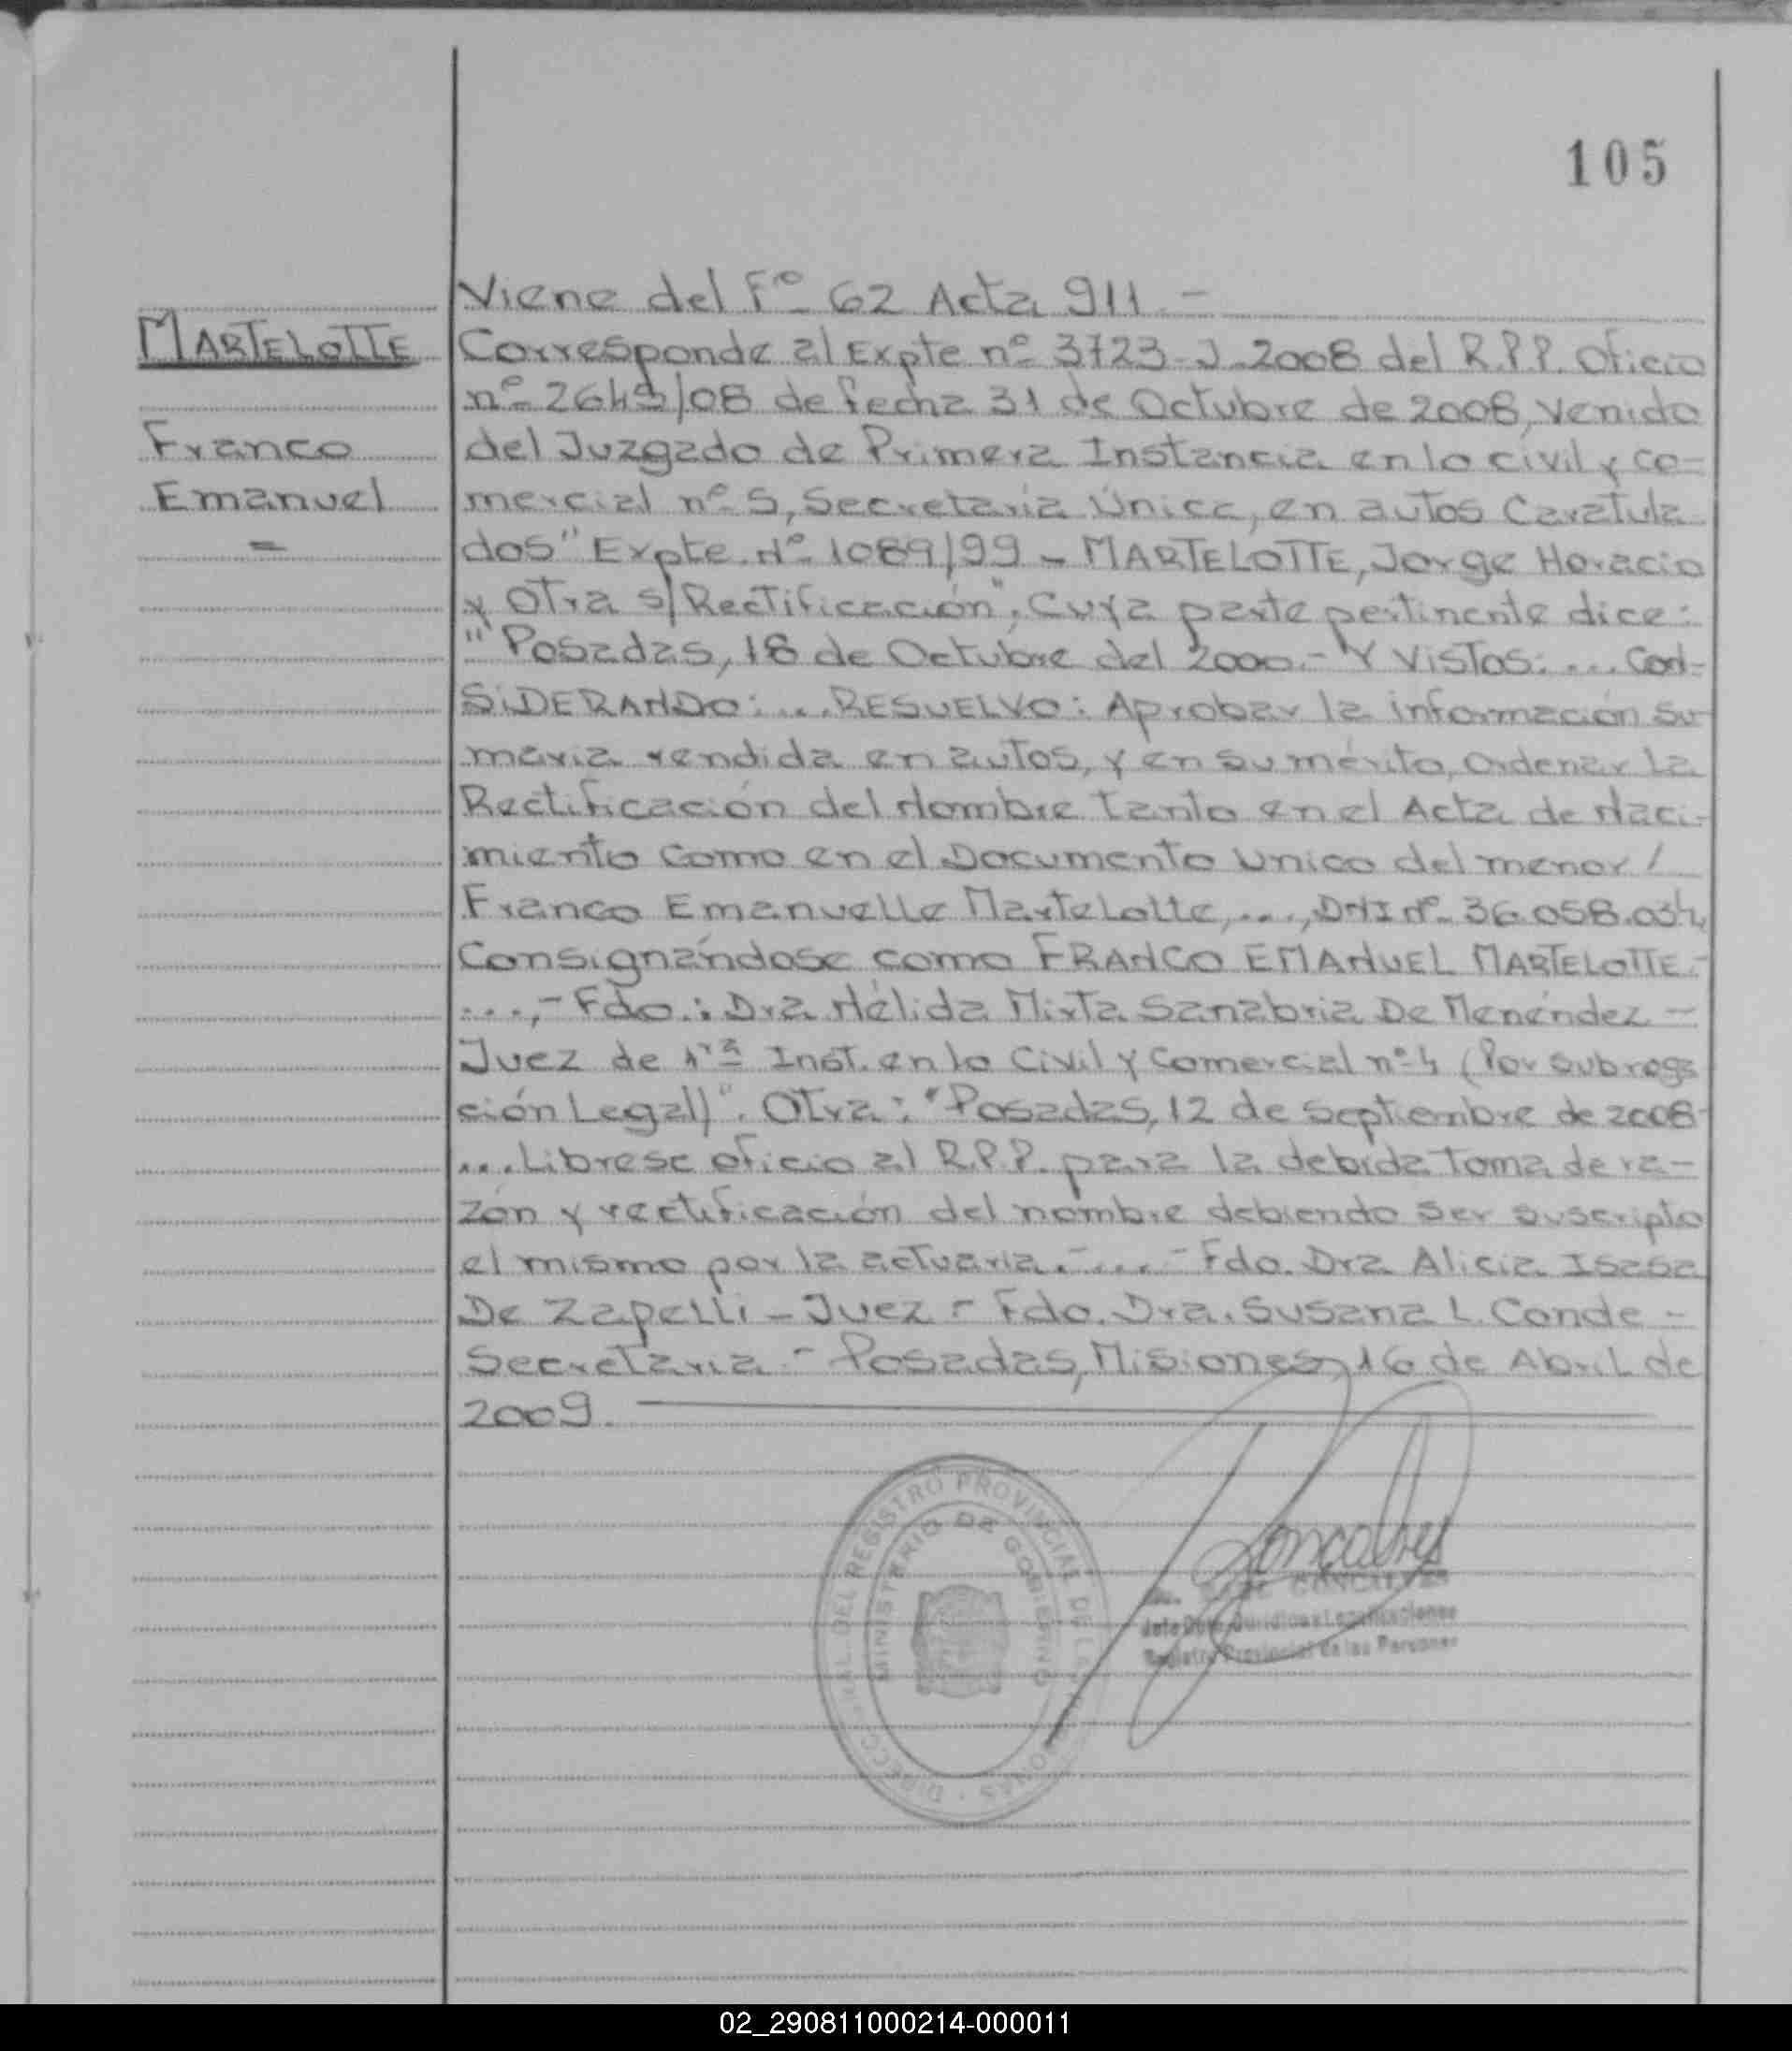 105
MARTELOTTE
Franco
Emanuel
=
Viene del Fº 62 Acta 911.-
Corresponde al Expte nº 3723-J-2008 del R.P.P. Oficio
nº 2649/08 de fecha 31 de Octubre de 2008, venido
del Juzgado de Primera Instancia en lo civil y co=
mercial nº 5, Secretaria Única, en autos Caratula
dos "Expte. Nº 1089/99 - MARTELOTTE, Jorge Horacio
y Otra s/Rectificación", cuya parte pertinente dice:
"Posadas, 18 de Octubre del 2000.- Y VISTOS: ... CoN-
SIDERANDO: ... RESUELVO: Aprobar la información su-
maria rendida en autos, y en su mérito, Ordenar La
Rectificación del Nombre tanto en el Acta de Naci-
miento como en el Documento Unico del menor /
Franco Emanuelle Martelotte, ..., DNI nº 36.058.034,
Consignándose como FRANCO EMANUEL MARTELOTTE.-
...,- Fdo.: Dra Nélida Mirta Sanabria De Menéndez -
Juez de 1ra Inst. en lo Civil y Comercial nº 4 (Por subroga
ción Legal)". Otra: "Posadas, 12 de septiembre de 2008-
... Librese oficio al R.P.P. para la debida toma de ra-
zón y rectificación del nombre debiendo ser suscripto
el mismo por la actuaria.- ... - Fdo. Dra Alicia Isasa
De Zapelli - Juez - Fdo. Dra. Susana L. Conde -
Secretaria - Posadas, Misiones, 16 de Abril de
2009.
DEL REGISTRO PROVINCIAL DE
MINISTERIO DE GOBIERNO
Goncalves
GONCALVES
Jefe Dpto. Juridico y Legalizaciones
Registro Provincial de las Personas
02_290811000214-000011